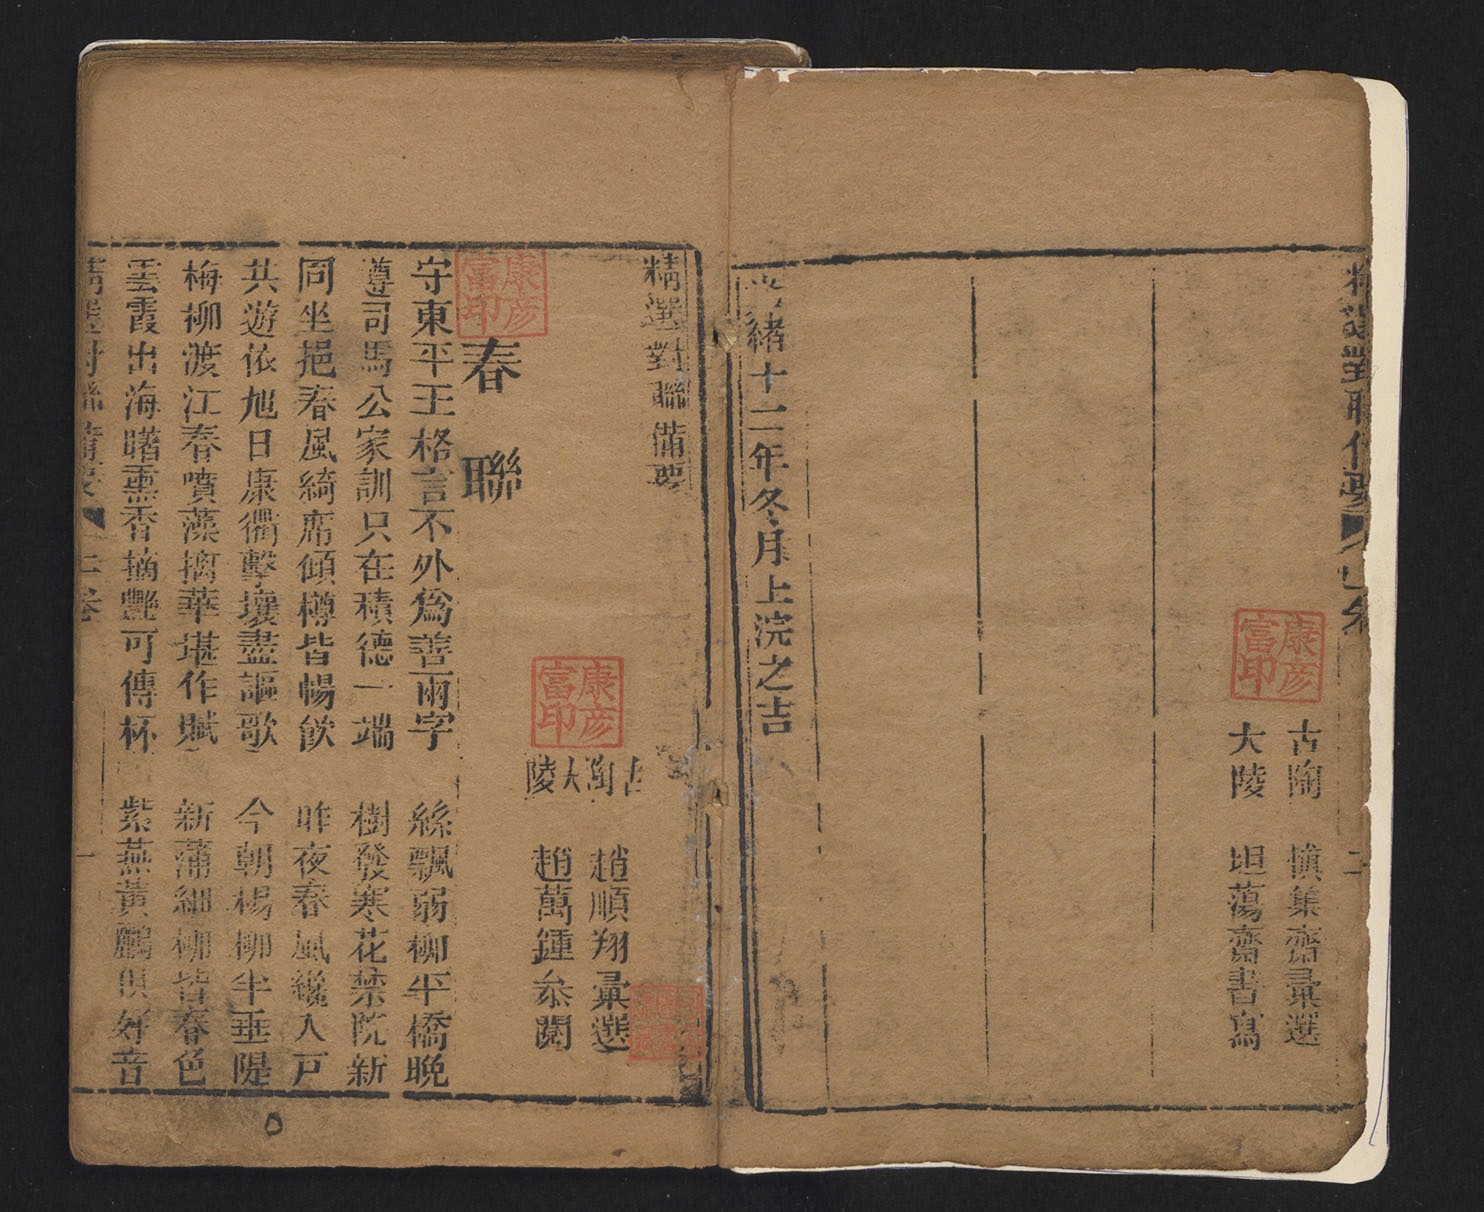 精選對聯備要
二
古陶 慎集齋彚選
大陵 坦蕩齋書寫
康彦富印
緒十二年冬月上浣之吉
精選對聯備要
古陶 趙順翔彚選
大陵 趙萬鍾叅閱
康彦富印
康彦富印
春聯
守東平王格言不外爲善兩字 絲飄弱柳平橋晚
遵司馬公家訓只在積德一端 樹發寒花禁院新
同坐挹春風綺席傾樽皆暢飲 昨夜春風纔入戸
共遊依旭日康衢擊壤盡謳歌 今朝楊柳半垂隄
梅柳渡江春噴藻摛華堪作賦 新蒲細柳皆春色
雲霞出海曙薫香摘艷可傳杯 紫燕黃鸝俱好音
精選對聯備要 上卷 一